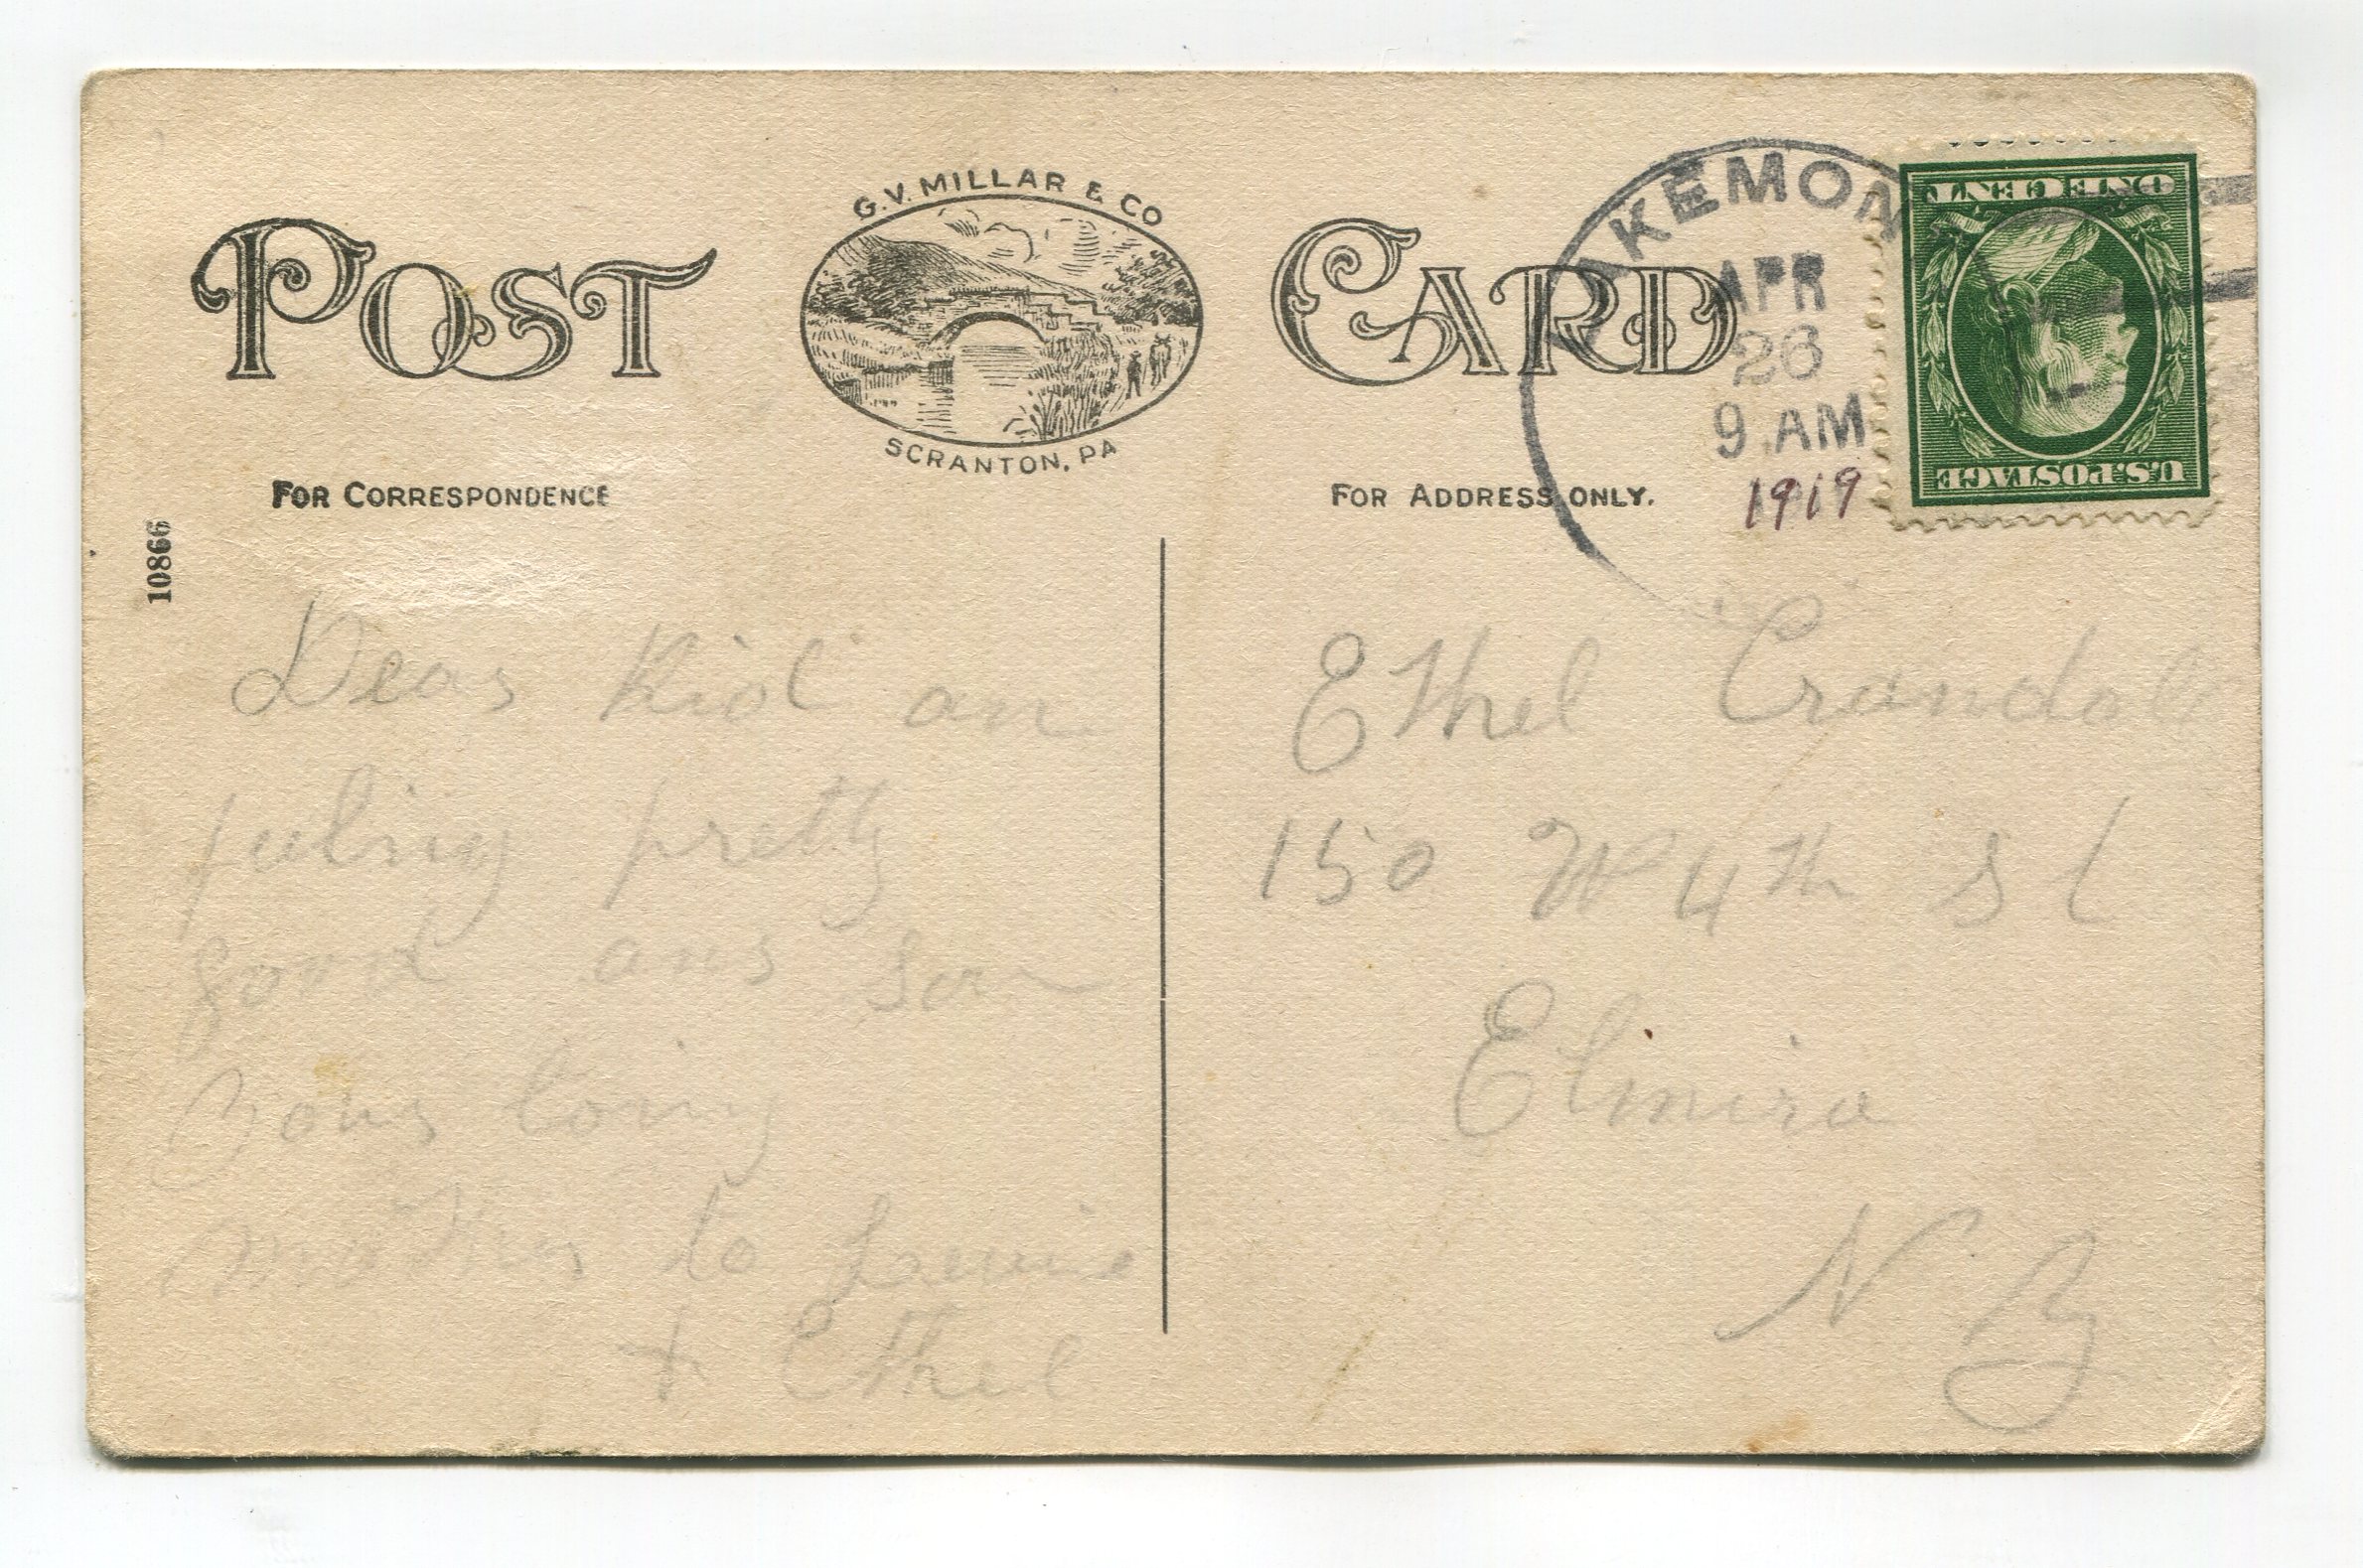 G.V. MILLAR & CO
POST CARD
SCRANTON, PA
FOR CORRESPONDENCE
FOR ADDRESS ONLY.
10866
AKEMON
APR
26
9 AM
1919
ONE CENT
U.S. POSTAGE
Dear Kid am
feeling pretty
good ans son
Yours loving
mother to
& Ethel
Ethel Crandall
150 W 4th St
Elmira
N Y